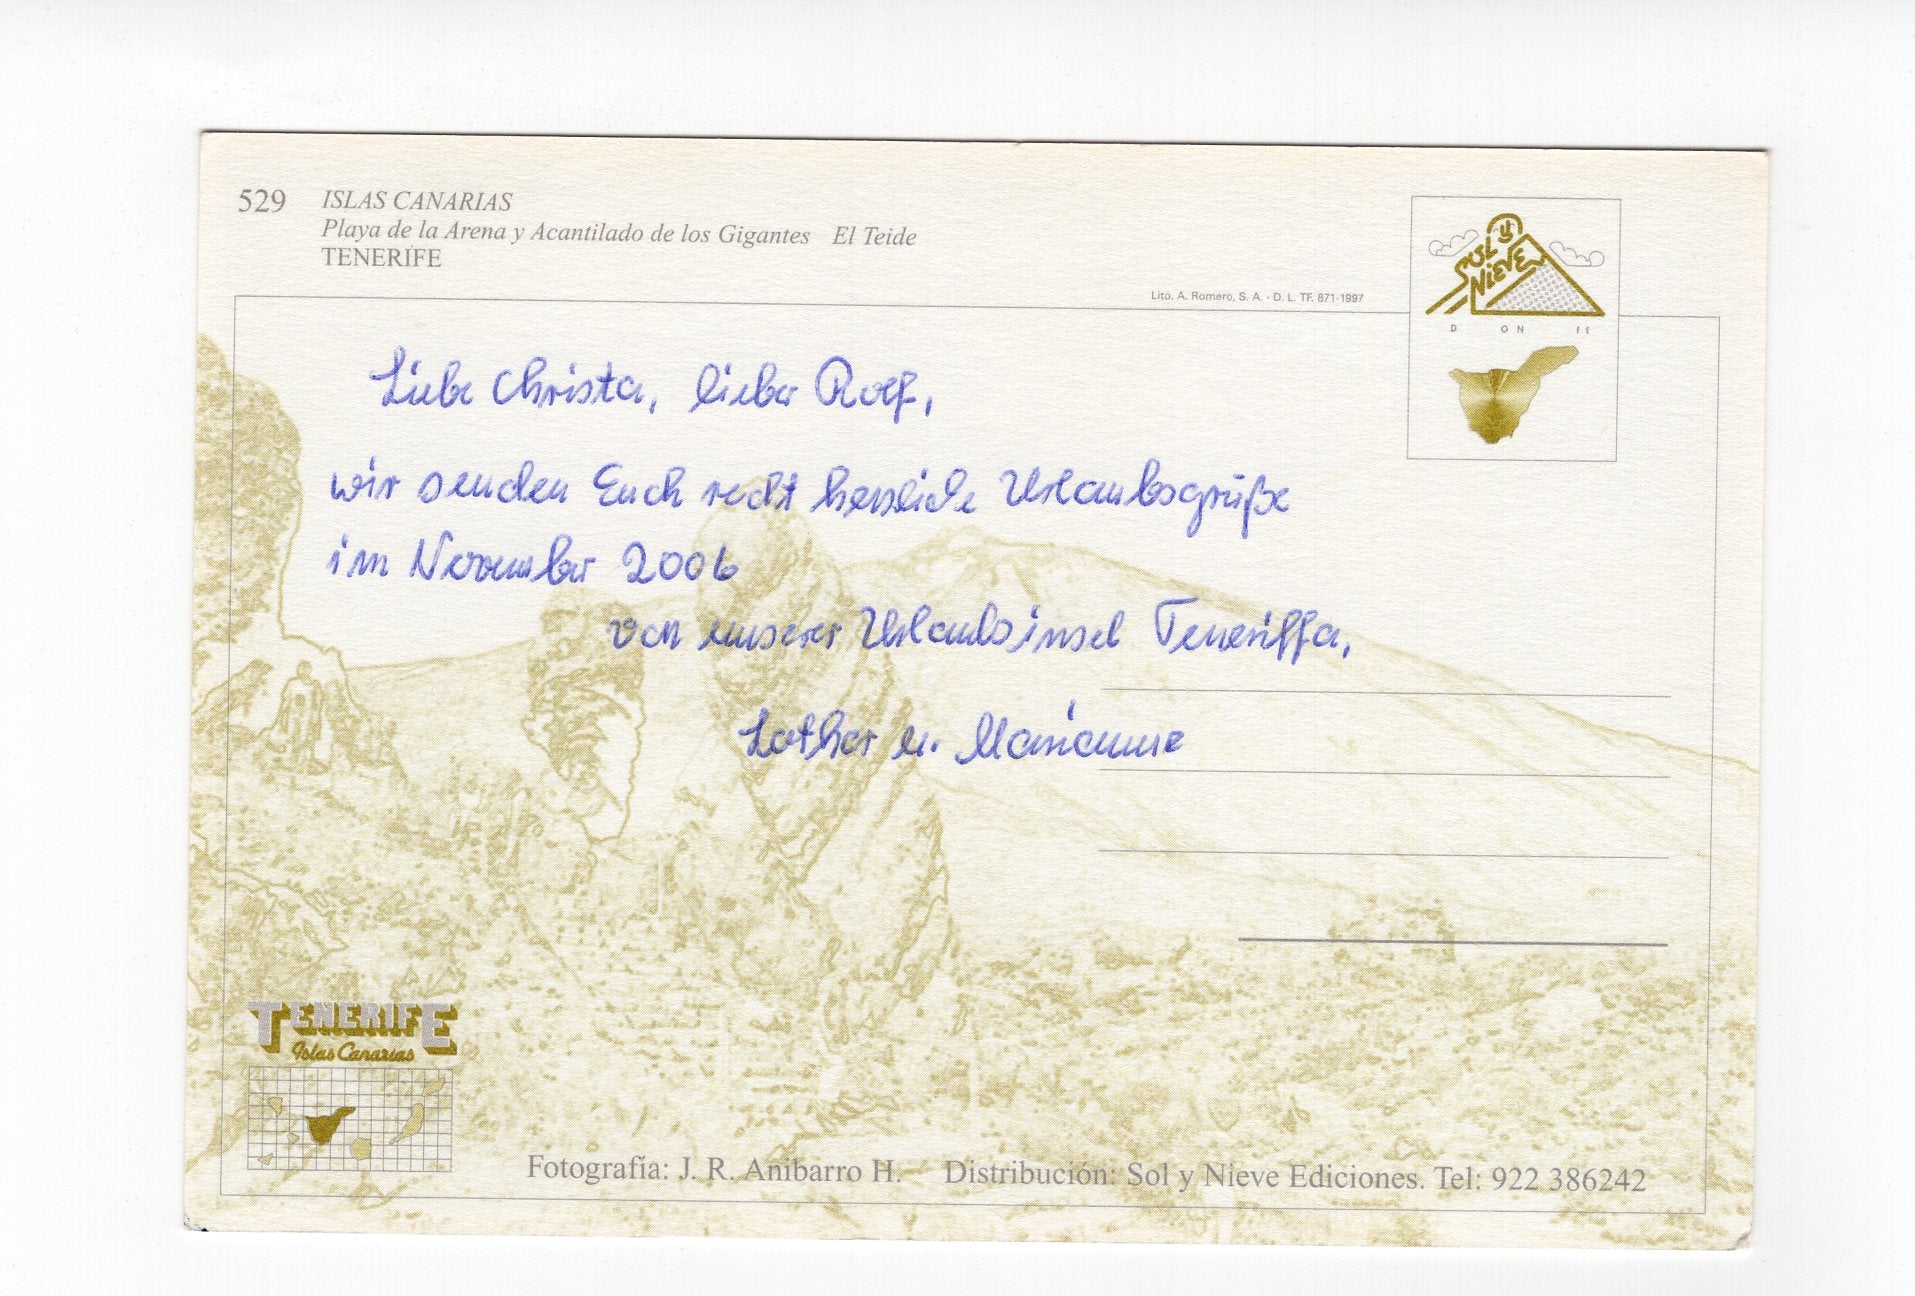 529 ISLAS CANARIAS
Playa de la Arena y Acantilado de los Gigantes El Teide
TENERIFE
Lito. A. Romero, S. A. - D. L. TF. 871-1997
SOL Y
NIEVE
D ON FE
Liebe Christa, lieber Rolf,
wir senden Euch recht herzliche Urlaubsgrüße
im November 2006
von unserer Urlaubsinsel Teneriffa,
Lothar u. Marianne
TENERIFE
Islas Canarias
Fotografía: J. R. Anibarro H. Distribución: Sol y Nieve Ediciones. Tel: 922 386242